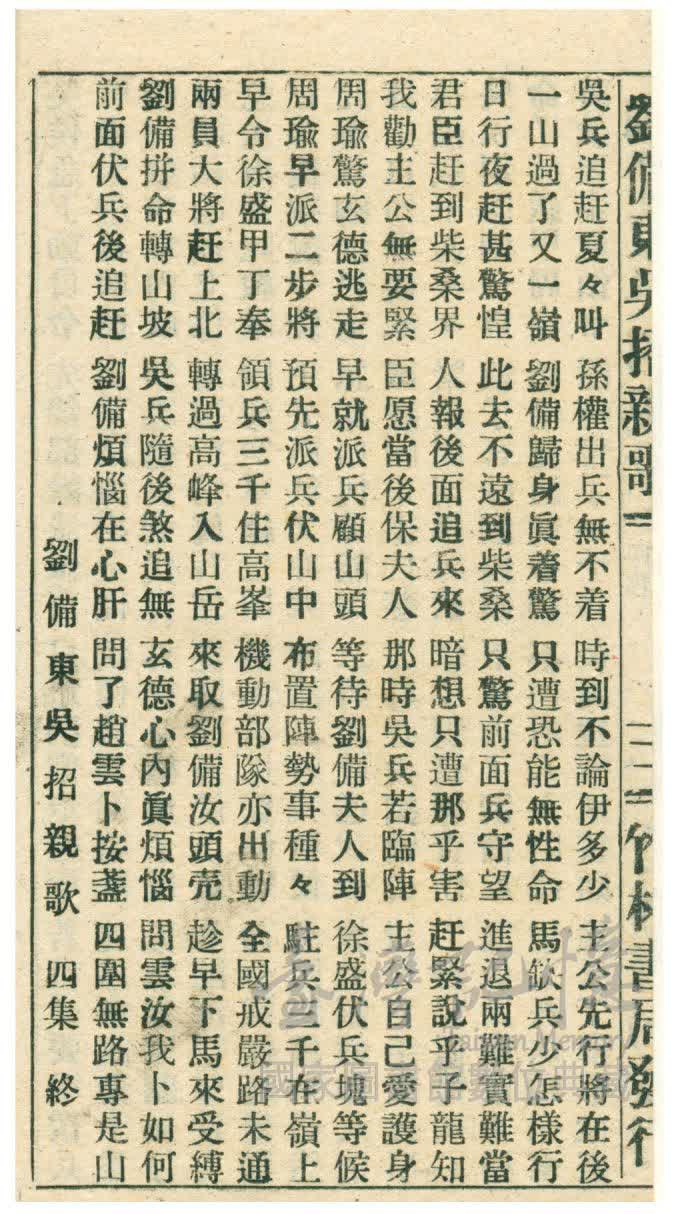 劉備東吳招親歌
竹林書局發行
吳兵追赶夏々叫 孫權出兵無不着 時到不論伊多少 主公先行將在後
一山過了又一嶺 劉備歸身眞着驚 只遭恐能無性命 馬缺兵少怎樣行
日行夜赶甚驚惶 此去不遠到柴桑 只驚前面兵守望 進退兩難實難當
君臣赶到柴桑界 人報後面追兵來 暗想只遭那乎害 赶緊說乎子龍知
我勸主公無要緊 臣愿當後保夫人 那時吳兵若臨陣 主公自己愛護身
周瑜驚玄德逃走 早就派兵顧山頭 等待劉備夫人到 徐盛伏兵塊等候
周瑜早派二步將 預先派兵伏山中 布置陣勢事種々 駐兵三千在嶺上
早令徐盛甲丁奉 領兵三千住高峯 機動部隊亦出動 全國戒嚴路未通
兩員大將赶上北 轉過高峰入山岳 來取劉備汝頭壳 趁早下馬來受縛
劉備拼命轉山坡 吳兵隨後煞追無 玄德心內眞煩惱 問雲汝我卜如何
前面伏兵後追赶 劉備煩惱在心肝 問了趙雲卜按盞 四圍無路專是山
劉備東吳招親歌 四集 終
臺灣記憶
Taiwan Memory
國家圖書館數位典藏